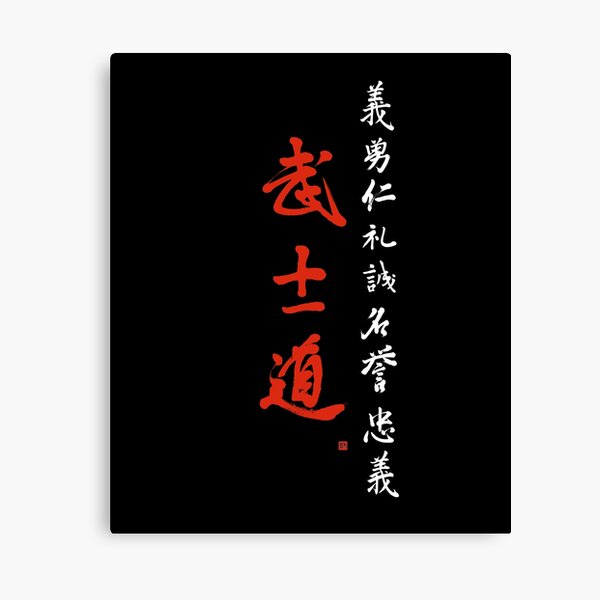 義勇仁礼誠名誉忠義
武士道